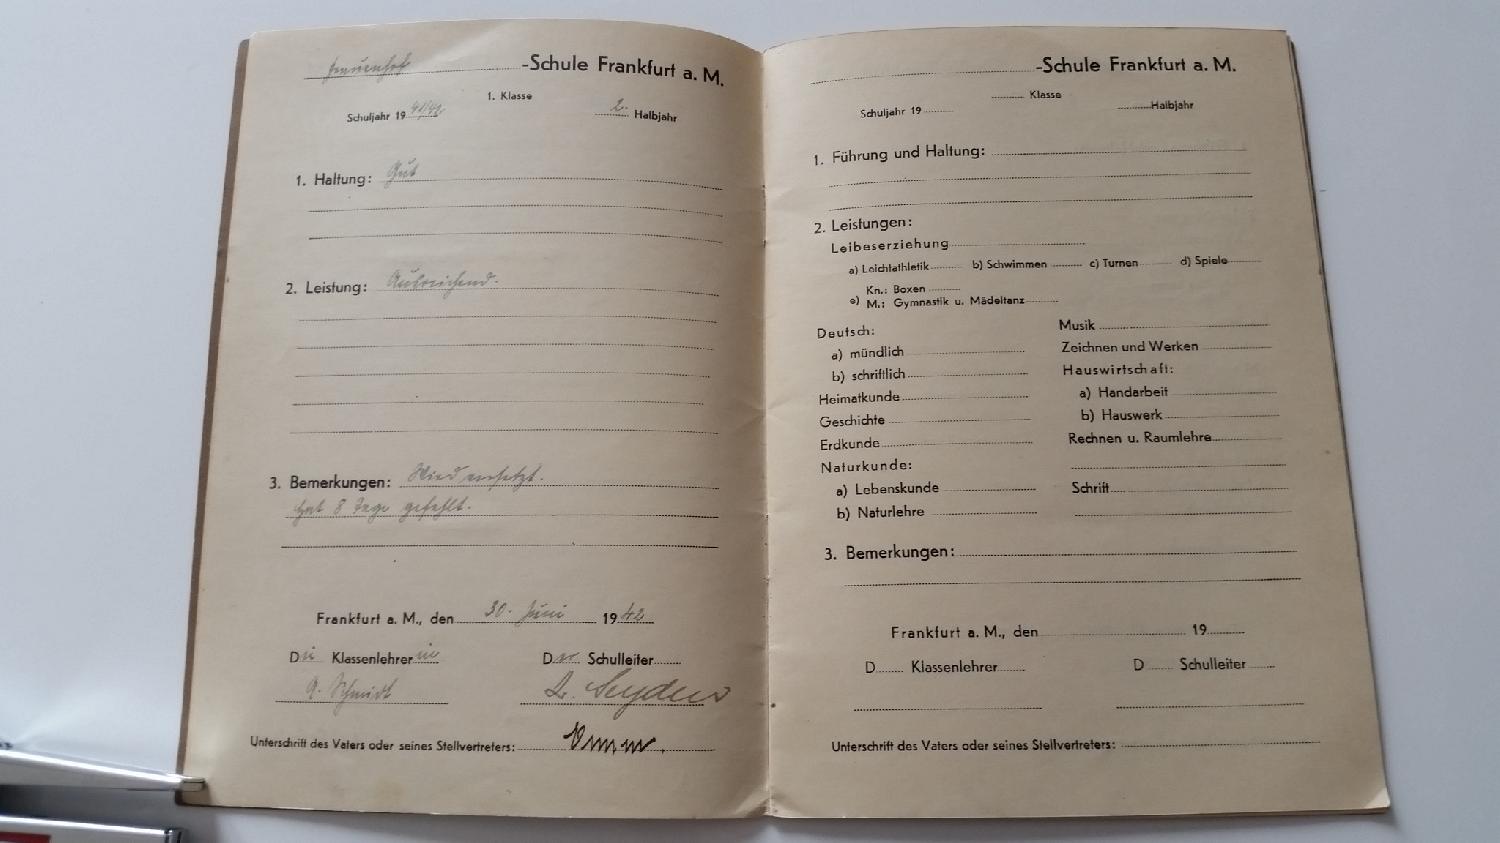 Frauenhof-Schule Frankfurt a. M.
1. Klasse
Schuljahr 1941/42 2. Halbjahr
1. Haltung: Gut
2. Leistung: Ausreichend.
3. Bemerkungen: Wird versetzt.
Hat 8 Tage gefehlt.
Frankfurt a. M., den 30. Juni 1942
Die Klassenlehrerin Der Schulleiter
A. Schmidt
Unterschrift des Vaters oder seines Stellvertreters:
-Schule Frankfurt a. M.
Klasse
Schuljahr 19 Halbjahr
1. Führung und Haltung:
2. Leistungen:
Leibeserziehung
a) Leichtathletik b) Schwimmen c) Turnen d) Spiele
Kn.: Boxen
e) M.: Gymnastik u. Mädeltanz
Deutsch:
a) mündlich
b) schriftlich
Heimatkunde
Geschichte
Erdkunde
Naturkunde:
a) Lebenskunde
b) Naturlehre
Musik
Zeichnen und Werken
Hauswirtschaft:
a) Handarbeit
b) Hauswerk
Rechnen u. Raumlehre
Schrift
3. Bemerkungen:
Frankfurt a. M., den 19
D Klassenlehrer D Schulleiter
Unterschrift des Vaters oder seines Stellvertreters: